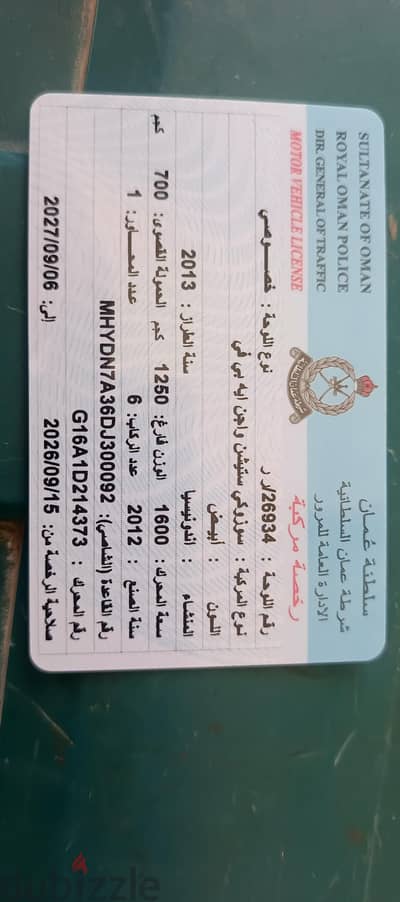 SULTANATE OF OMAN
ROYAL OMAN POLICE
DIR. GENERAL OF TRAFFIC
MOTOR VEHICLE LICENSE
سلطنة عُمان
شرطة عمان السلطانية
الادارة العامة للمرور
رخصة مركبة
رقم اللوحة : 26994/ر ر نوع اللوحة : خصوصي
نوع المركبة : سوزوكي ستيشن واجن ايه بي في
اللون : أبيض
المنشاء : اندونيسيا سنة الطراز : 2013
سعة المحرك: 1600 الوزن فارغ: 1250 كجم الحمولة القصوى: 700 كجم
سنة الصنع : 2012 عدد الركاب: 6 عدد المحاور: 1
رقم القاعدة (الشاسي): MHYDN7A36DJ300092
رقم المحرك : G16A1D214373
صلاحية الرخصة من: 2026/09/15 إلى: 2027/09/06
dubizzle